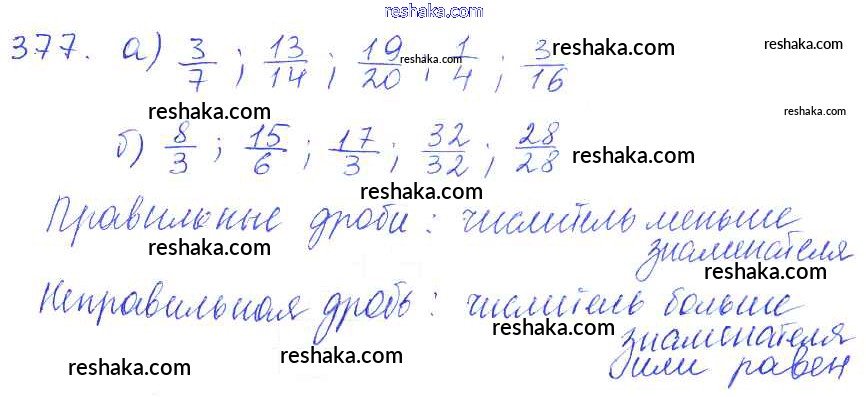 reshaka.com
377. а) 3/7 ; 13/14 ; 19/20 ; 1/4 ; 3/16
reshaka.com reshaka.com reshaka.com reshaka.com
reshaka.com reshaka.com reshaka.com
б) 8/3 ; 15/6 ; 17/3 ; 32/32 ; 28/28
reshaka.com reshaka.com reshaka.com
reshaka.com
Правильные дроби : числитель меньше
знаменателя
reshaka.com reshaka.com
Неправильная дробь : числитель больше
reshaka.com
знаменателя
reshaka.com reshaka.com
или равен